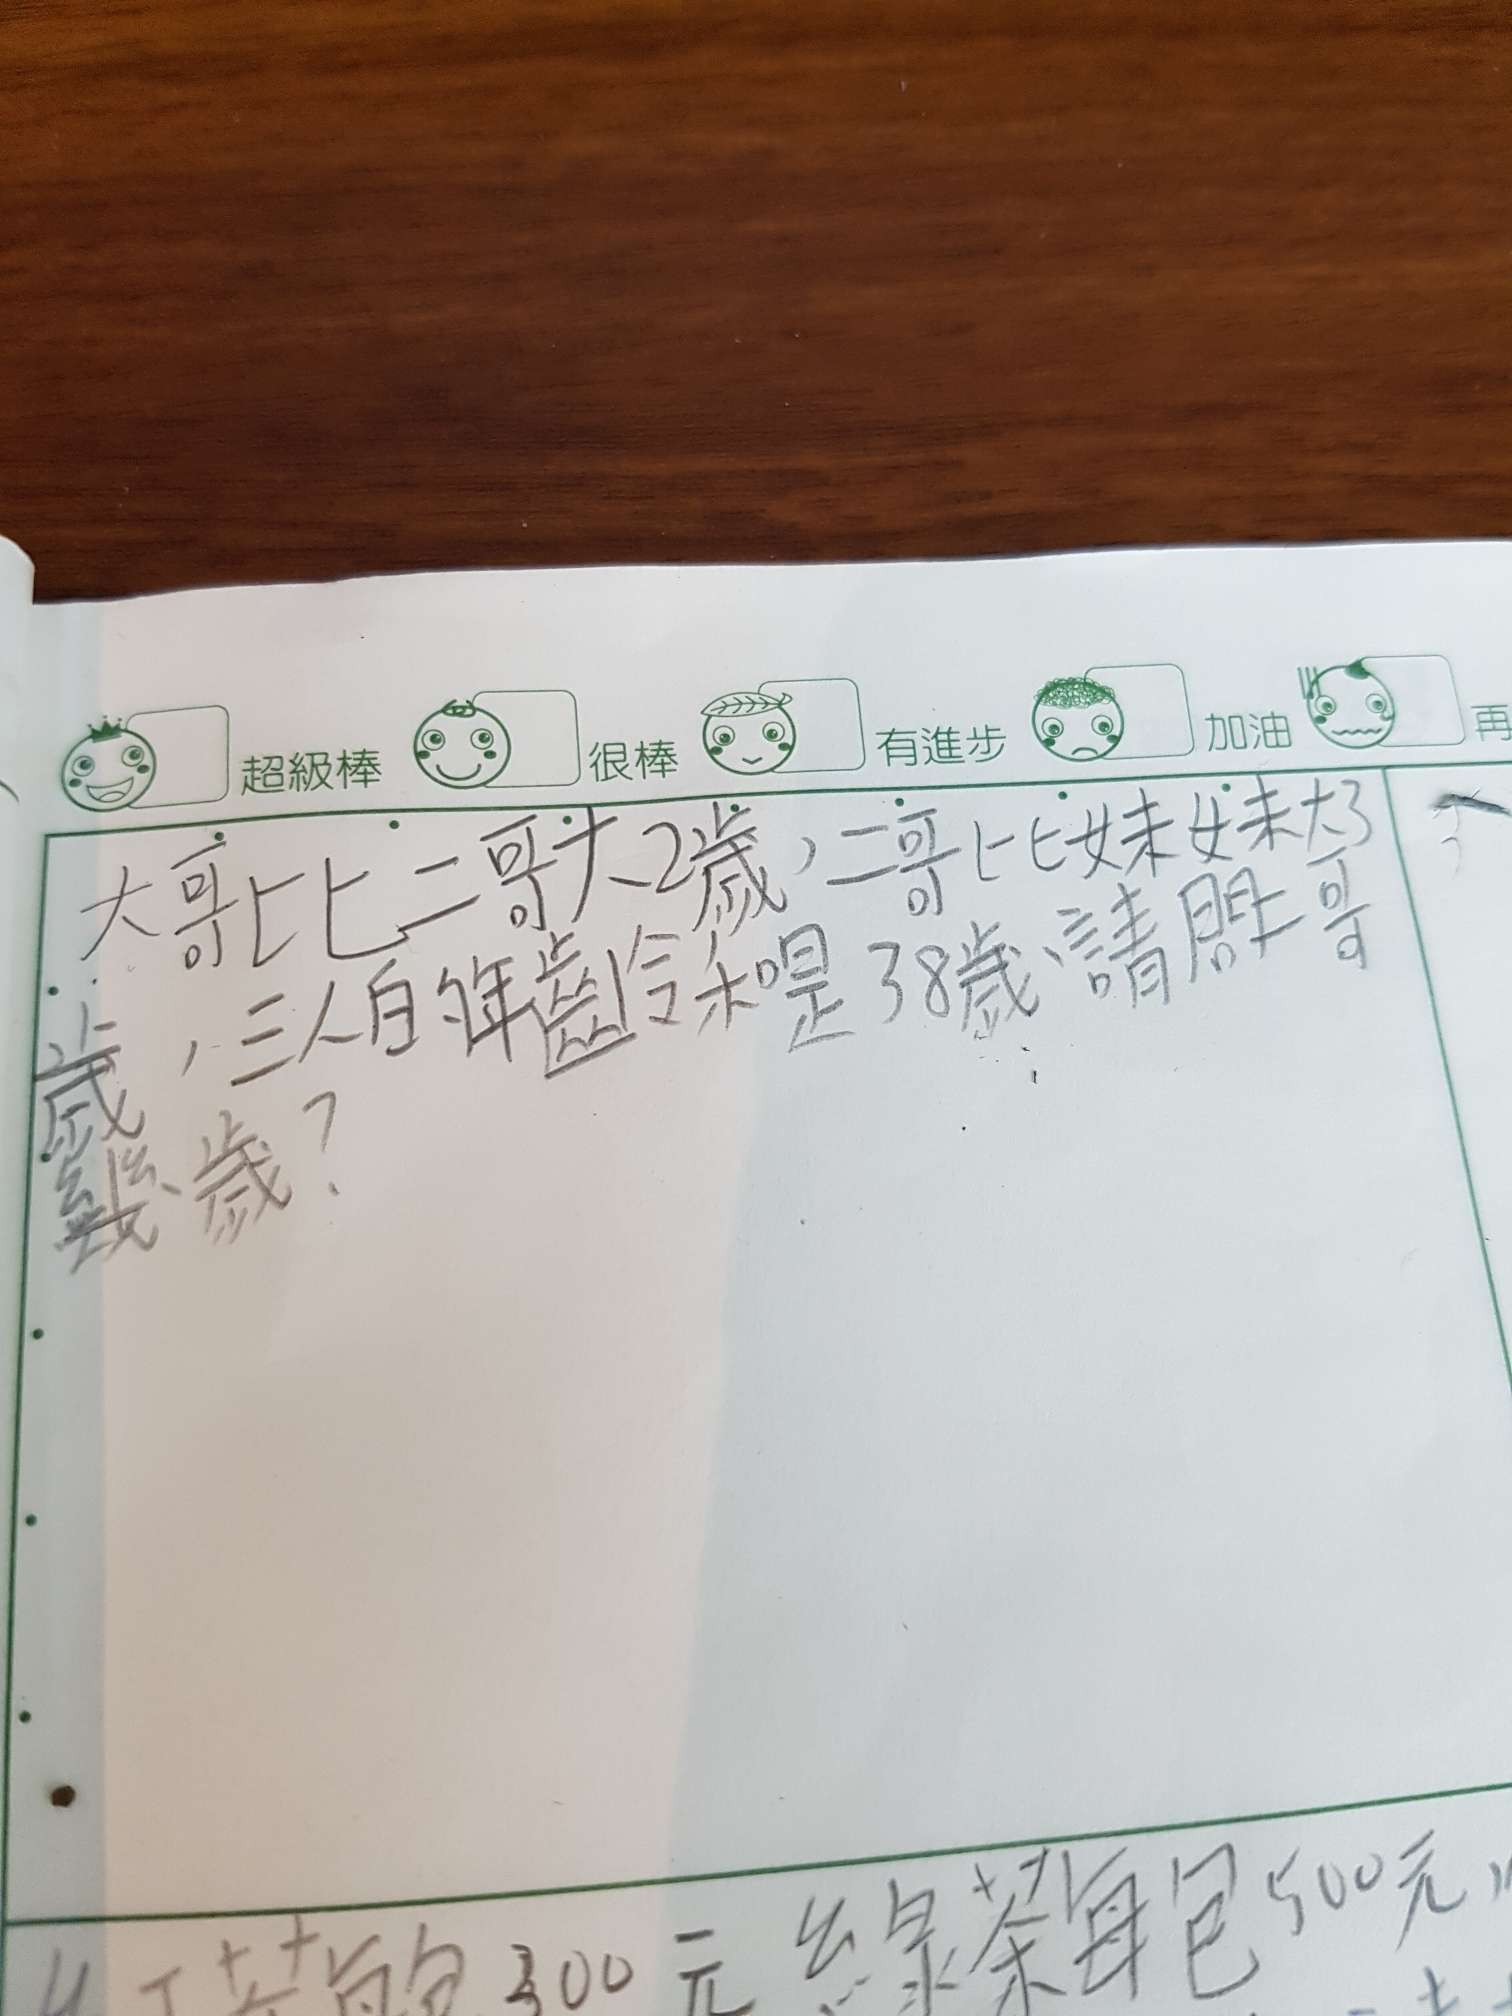 超級棒 很棒 有進步 加油 再
大哥比二哥大2歲，二哥比妹妹大3
歲，三人的年齡和是38歲、請問二哥
幾歲？
300元 綠茶每包500元